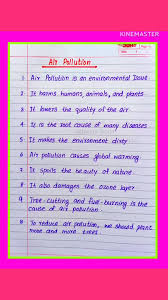 KINEMASTER
Air Pollution
1 Air Pollution is an environmental Issue
2 It harms humans, animals, and plants
3 It lowers the quality of the air
4 It is the root cause of many diseases
5 It makes the environment dirty
6 Air pollution causes global warming
7 It spoils the beauty of nature
8 It also damages the ozone layer
9 Tree-cutting and fuel-burning is the
cause of air pollution.
8 To reduce air pollution, we should plant
more and more trees.